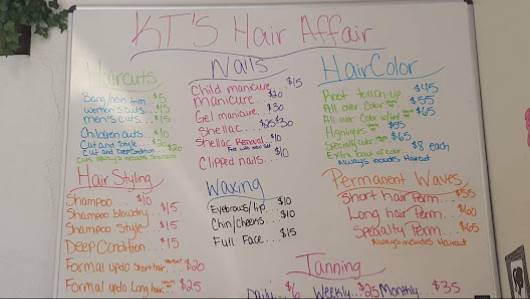 KT'S Hair Affair
Haircuts
Bang/hem trim $5
women's cuts.. $15
men's cuts... $15
Children cuts.. $10
Cut and Style
Cut and DeepCondition $20
Nails
Child manicure.. $15
manicure... $20
Gel manicure.. $30
Shellac...
Shellac Removal.. $10
Free with new set
Clipped nails... $10
HairColor
Root touch-up $45
All over Color $55
All over Color w/ $65
Highlights $55
Specialty color $65
Extra bowl of color.. $8 each
Always includes Haircut
Hair Styling
Shampoo $10
Shampoo blowdry.. $15
Shampoo Style... $15
Deep Condition.. $15
Formal updo Short hair $20
Formal updo Long hair $25
Waxing
Eyebrows/lip.. $10
Chin/Cheeks.. $10
Full Face... $15
Permanent Waves
Short hair Perm... $55
Long hair Perm... $60
Specialty Perm... $65
Always includes Haircut
Tanning
Daily.. $6 Weekly.. $25 Monthly.. $35